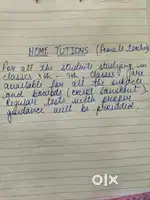 HOME TUTIONS (Female teacher)
For all the students studying in
classes 3th - 7th, classes are
available for all the subjects
and boards (except Sanskrit).
Regular tests with proper
guidance will be provided.
OLX